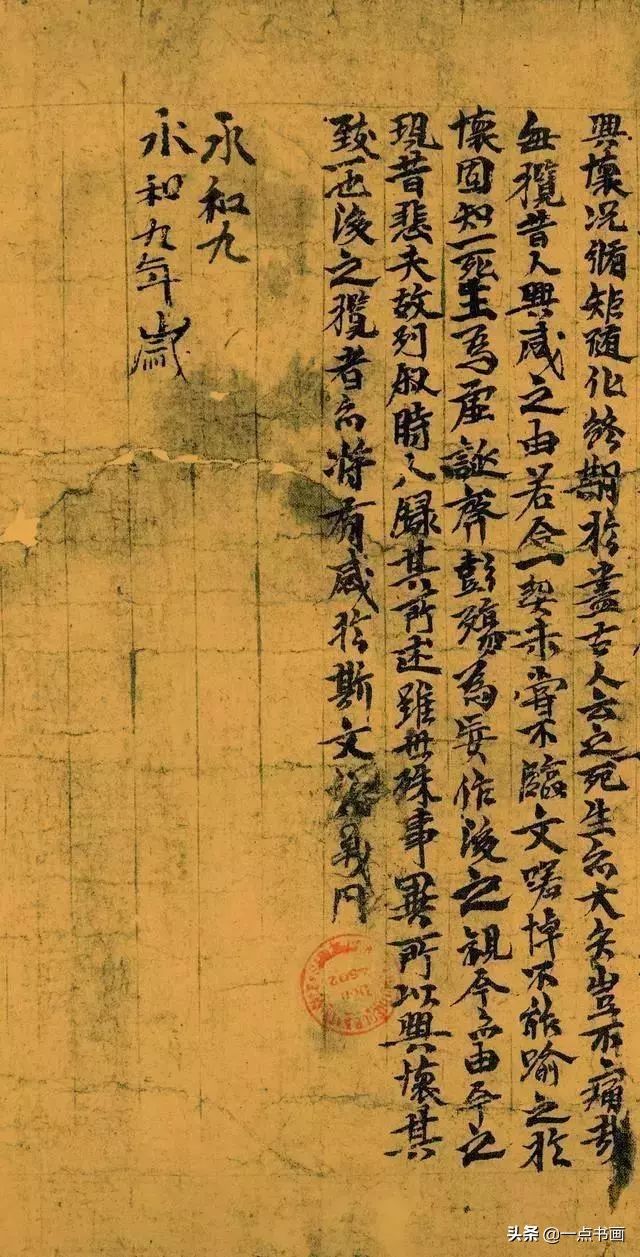 興懷况脩矩随化終期於盡古人云之死生亦大矣豈不痛哉
每攬昔人興感之由若合一契未嘗不臨文嗟悼不能喻之於
懷固知一死生為虛誕齊彭殤為妄作後之視今亦由今之
視昔悲夫故列叙時人録其所述雖世殊事異所以興懷其
致一也後之攬者亦將有感於斯文
永和九
永和九年歲
头条 @一点书画